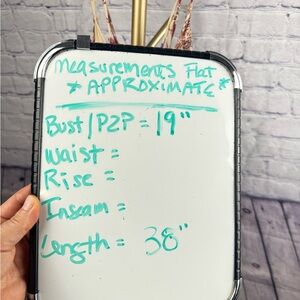 Measurements Flat
* APPROXIMATE *
Bust/P2P = 19"
Waist =
Rise =
Inseam =
Length = 38"